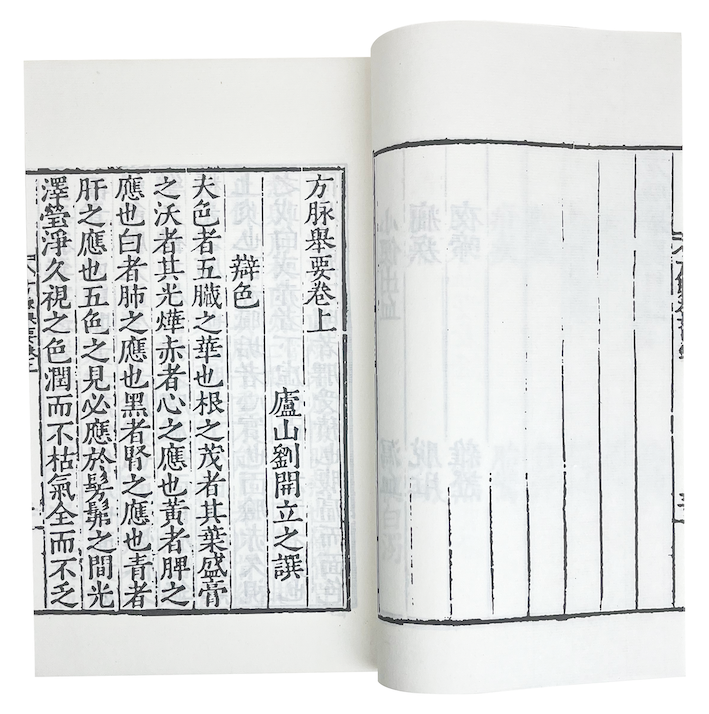 方脉舉要卷上
廬山劉開立之譔
辯色
夫色者五臟之華也根之茂者其葉盛膏
之沃者其光燁赤者心之應也黃者脾之
應也白者肺之應也黑者腎之應也青者
肝之應也五色之見必應於髣髴之間光
澤瑩淨久視之色潤而不枯氣全而不乏